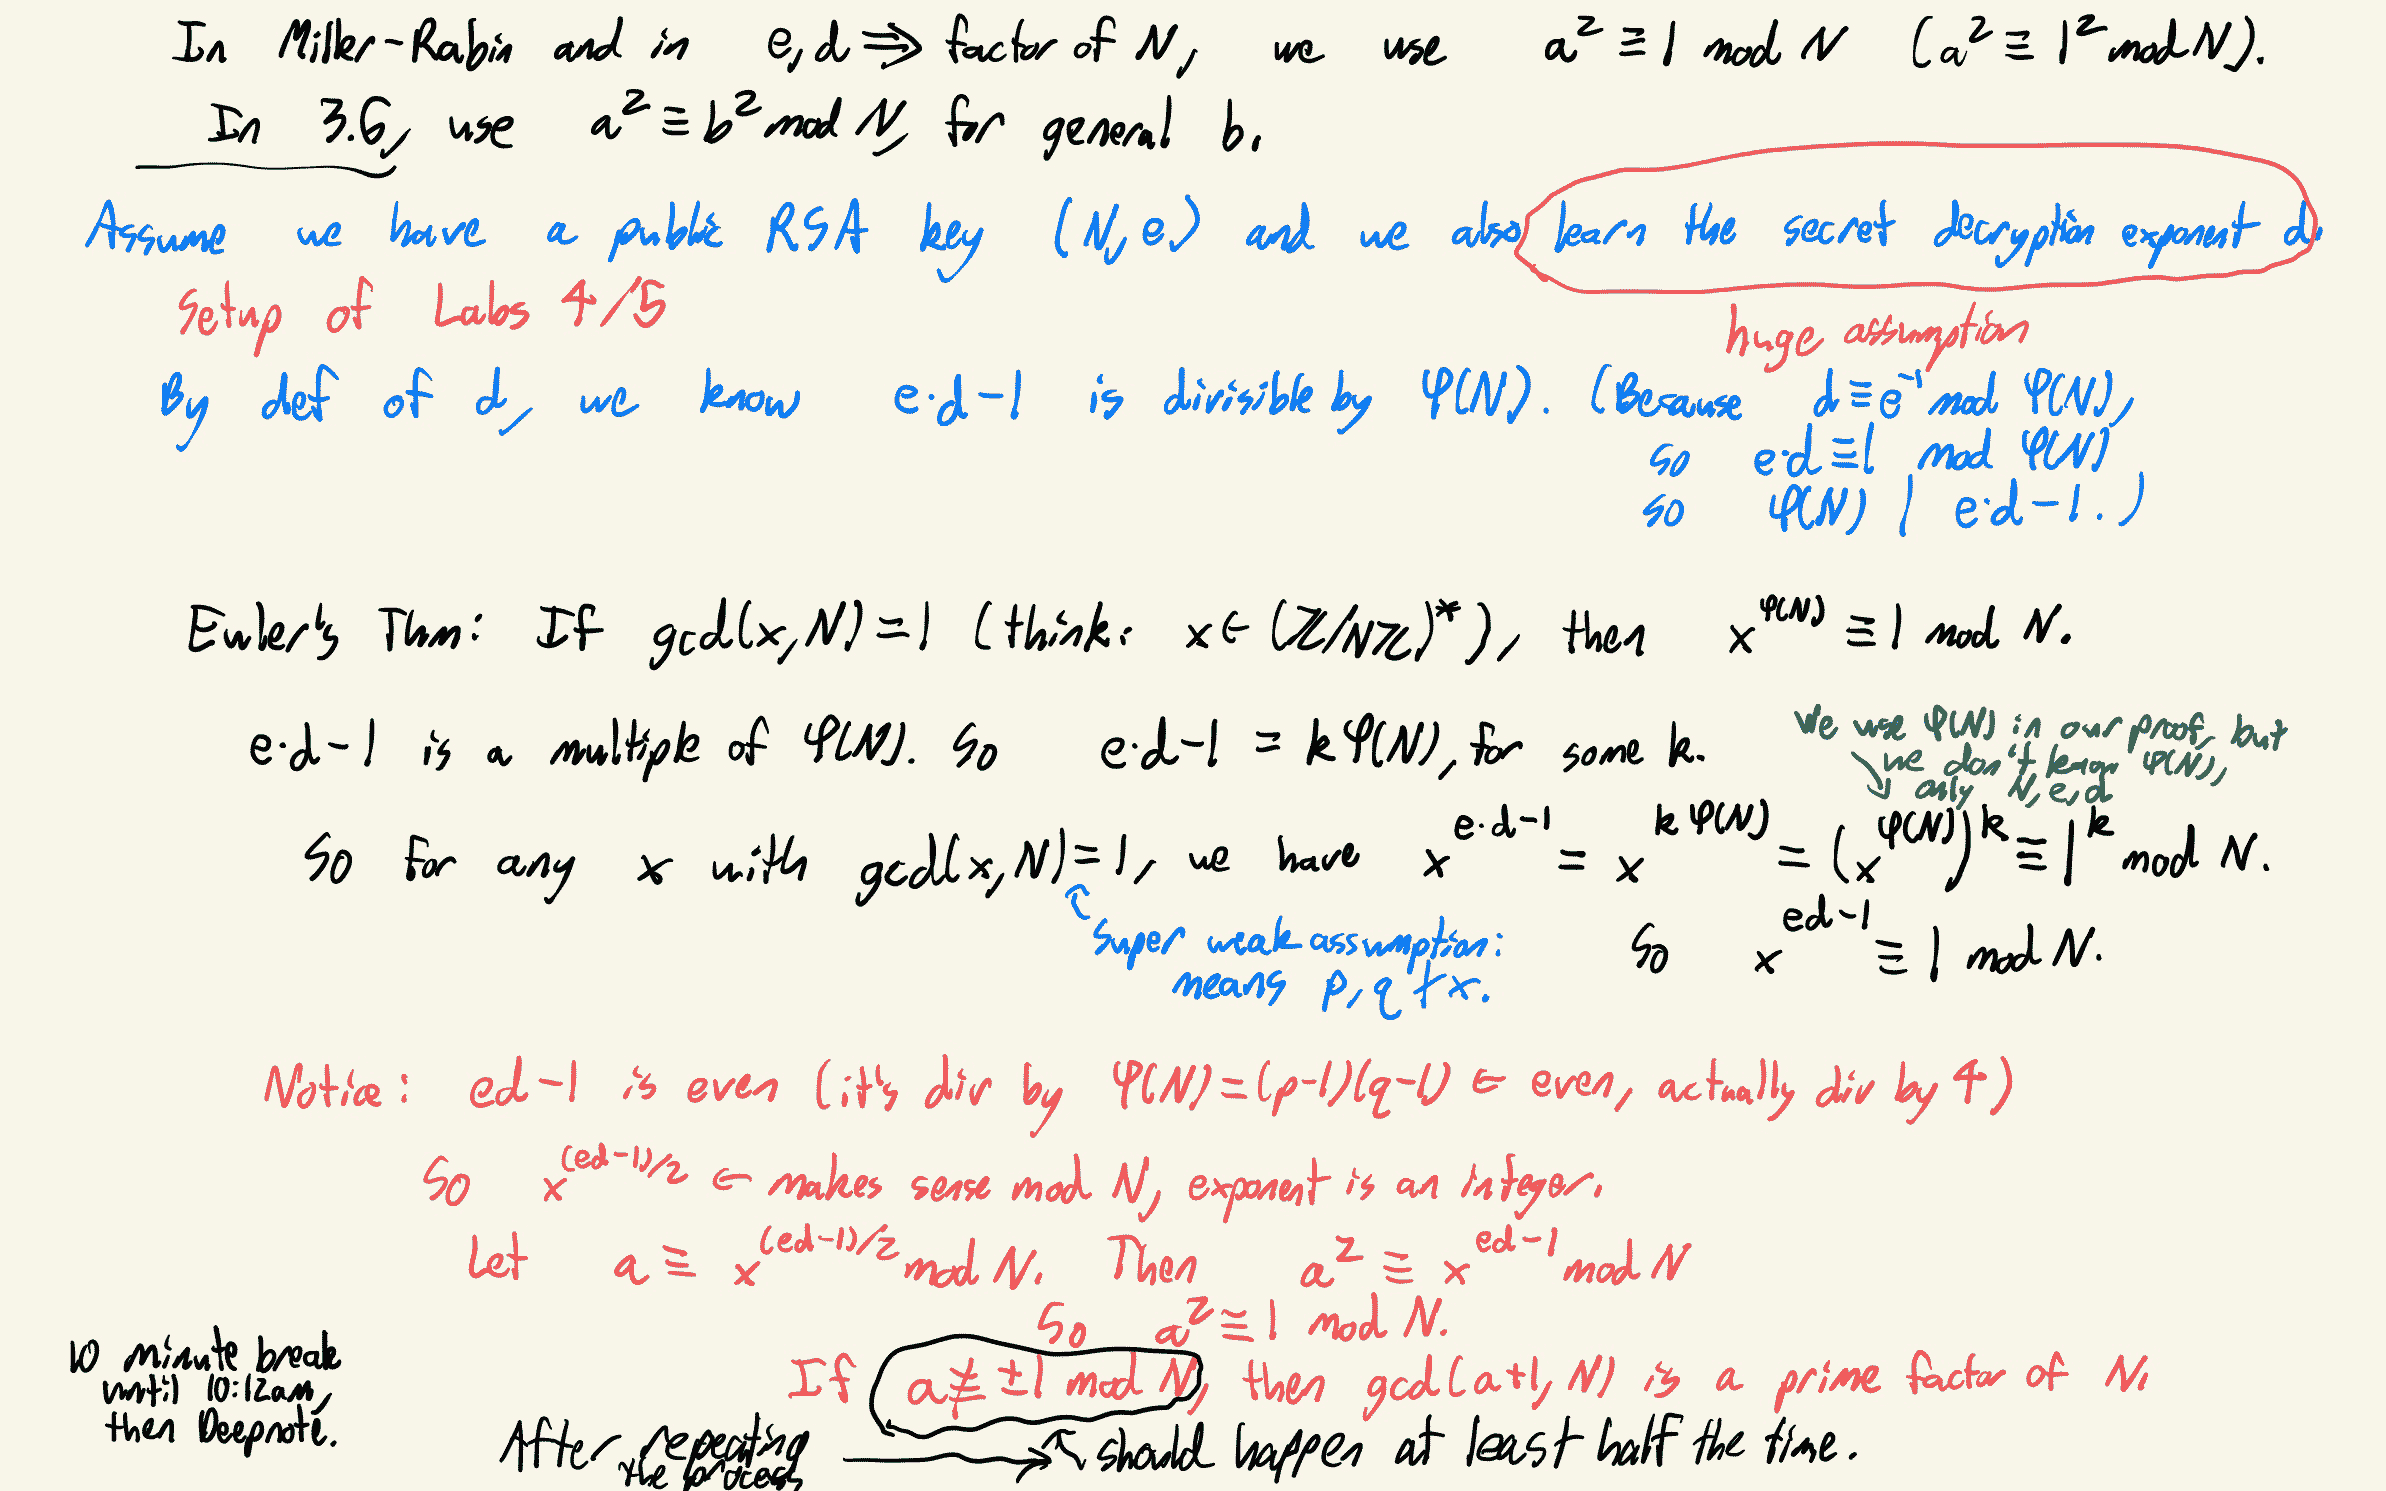 In Miller-Rabin and in e,d ⇒ factor of N, we use a² ≡ 1 mod N (a² ≡ 1² mod N).
In 3.6, use a² ≡ b² mod N, for general b.
Assume we have a public RSA key (N, e) and we also learn the secret decryption exponent d.
Setup of Labs 4/5
huge assumption
By def of d, we know e·d-1 is divisible by φ(N). (Because d ≡ e⁻¹ mod φ(N),
so e·d ≡ 1 mod φ(N)
so φ(N) | e·d-1.)
Euler's Thm: If gcd(x, N) = 1 (think: x ∈ (ℤ/Nℤ)*), then x^φ(N) ≡ 1 mod N.
e·d-1 is a multiple of φ(N). So e·d-1 = kφ(N), for some k.
We use φ(N) in our proof, but
we don't know φ(N),
only N, e, d
So for any x with gcd(x, N) = 1, we have x^(e·d-1) = x^(kφ(N)) = (x^φ(N))^k ≡ 1^k mod N.
So x^(ed-1) ≡ 1 mod N.
Super weak assumption:
means p, q ∤ x.
Notice: ed-1 is even (it's div by φ(N) = (p-1)(q-1) ← even, actually div by 4)
So x^((ed-1)/2) ← makes sense mod N, exponent is an integer.
Let a ≡ x^((ed-1)/2) mod N. Then a² ≡ x^(ed-1) mod N
So a² ≡ 1 mod N.
If a ≢ ±1 mod N, then gcd(a+1, N) is a prime factor of N.
After repeating
the process
→ should happen at least half the time.
10 minute break
until 10:12am,
then Deepnote.